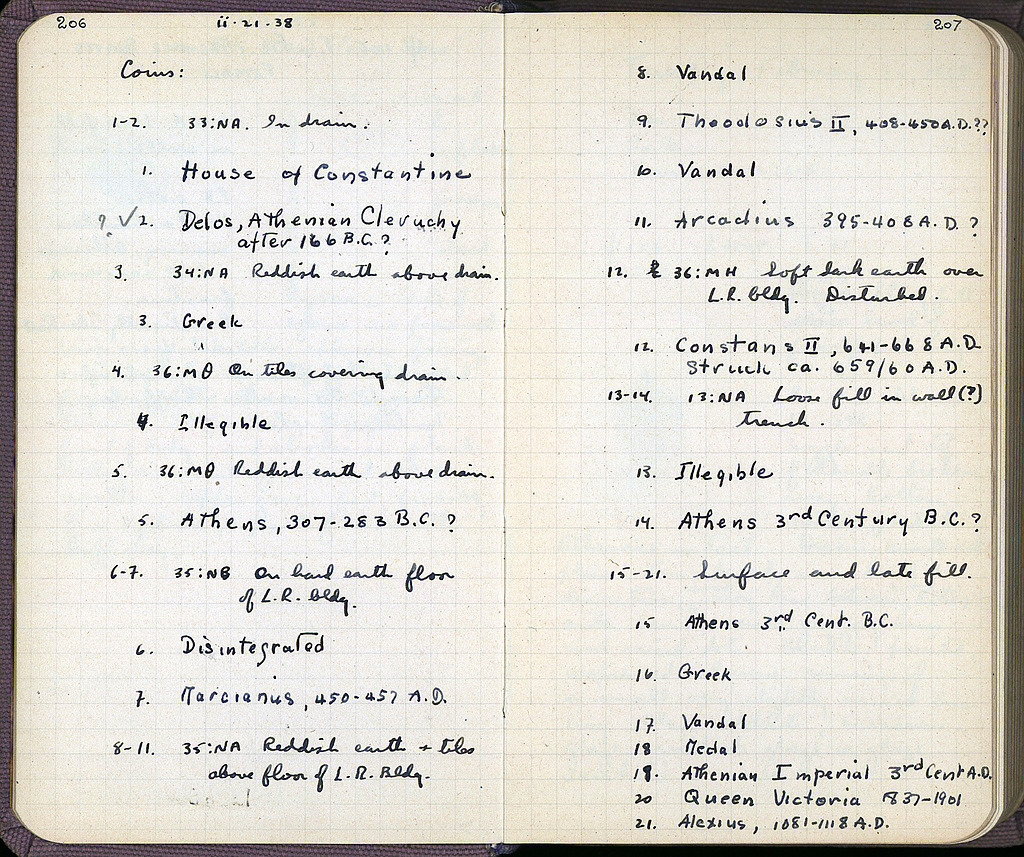 206
ii-21-38
Coins:
1-2. 33:NA. In drain.
1. House of Constantine
? ✓2. Delos, Athenian Cleruchy
after 166 B.C.?
3. 34:NA Reddish earth above drain.
3. Greek
4. 36:MΘ On tiles covering drain.
4. Illegible
5. 36:MΘ Reddish earth above drain.
5. Athens, 307-283 B.C. ?
6-7. 35:NB On hard earth floor
of L.R. bldg.
6. Disintegrated
7. Marcianus, 450-457 A.D.
8-11. 35:NA Reddish earth + tiles
above floor of L.R. Bldg.
207
8. Vandal
9. Theodosius II, 408-450 A.D.??
10. Vandal
11. Arcadius 395-408 A.D. ?
12. 36:MH Soft dark earth over
L.R. bldg. Disturbed.
12. Constans II, 641-668 A.D.
Struck ca. 659/60 A.D.
13-14. 13:NA Loose fill in wall(?)
trench.
13. Illegible
14. Athens 3rd Century B.C.?
15-21. Surface and late fill.
15 Athens 3rd Cent. B.C.
16. Greek
17. Vandal
18 Medal
19. Athenian Imperial 3rd Cent A.D.
20 Queen Victoria 1837-1901
21. Alexius, 1081-1118 A.D.